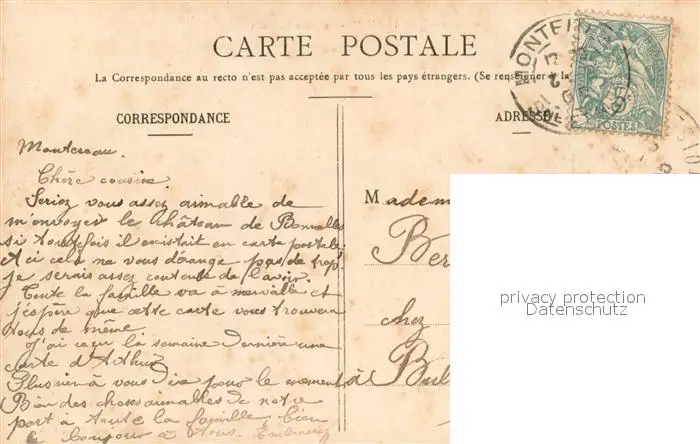 CARTE POSTALE
La Correspondance au recto n'est pas acceptée par tous les pays étrangers. (Se renseigner à la
CORRESPONDANCE
ADRESSE
POSTES
Montereau.
Chère cousine
Seriez vous assez aimable de
m'envoyer le château de Bonnelles
si toutefois il existait en carte postale
et si cela ne vous dérange pas de trop
je serais assez contente de l'avoir.
Toute la famille va à merveille et
j'espère que cette carte vous trouvera
tous de même.
J'ai reçu la semaine dernière une
carte d'Arthur
Plus rien à vous dire pour le moment
Bien des choses aimables de notre
part à toute la famille, bien
le bonjour à tous.
Madem
Ber
chez
à Bul
privacy protection
Datenschutz